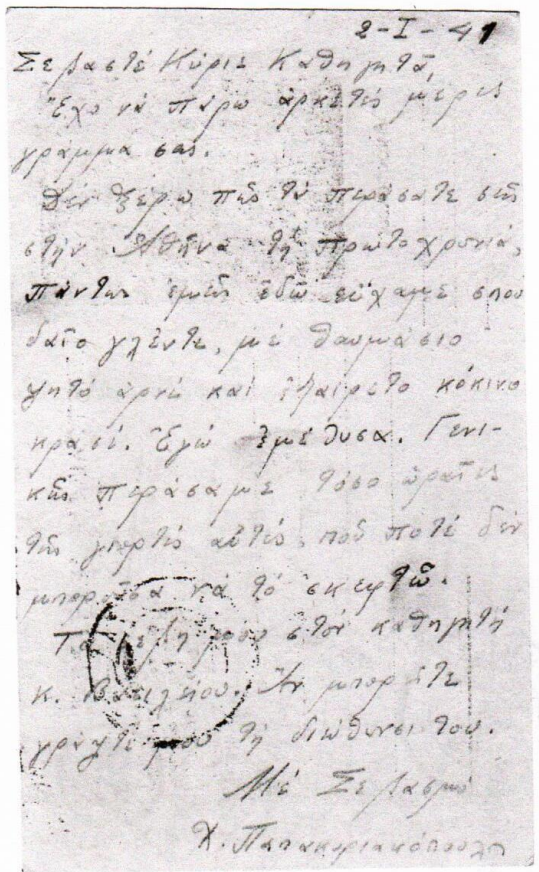 2-I-41
Σεβαστέ Κύριε Καθηγητά,
Ἔχο νά πάρω ἀρκετές μέρες
γράμμα σας.
Δέν ξέρω πῶς τή περάσατε σεῖς
στήν Ἀθήνα τή πρωτοχρονιά,
πάντως ἐμεῖς ἐδῶ εἴχαμε σπου
δαῖο γλέντι, μέ θαυμάσιο
ψητό ἀρνί καί ἐξαίρετο κόκινο
κρασί. Ἐγώ ἐμέθυσα. Γενι-
κῶς περάσαμε τόσο ὡραῖες
τῆς γιορτές αὐτές, πού ποτέ δέν
μποροῦσα νά τό σκεφτῶ.
Τά σέβη μου στόν καθηγητή
κ. Βασιλείου. Ἄν μπορεῖτε
γράψτε μου τή διεύθυνσί του.
Μέ Σεβασμό
Χ. Παπακυριακόπουλος